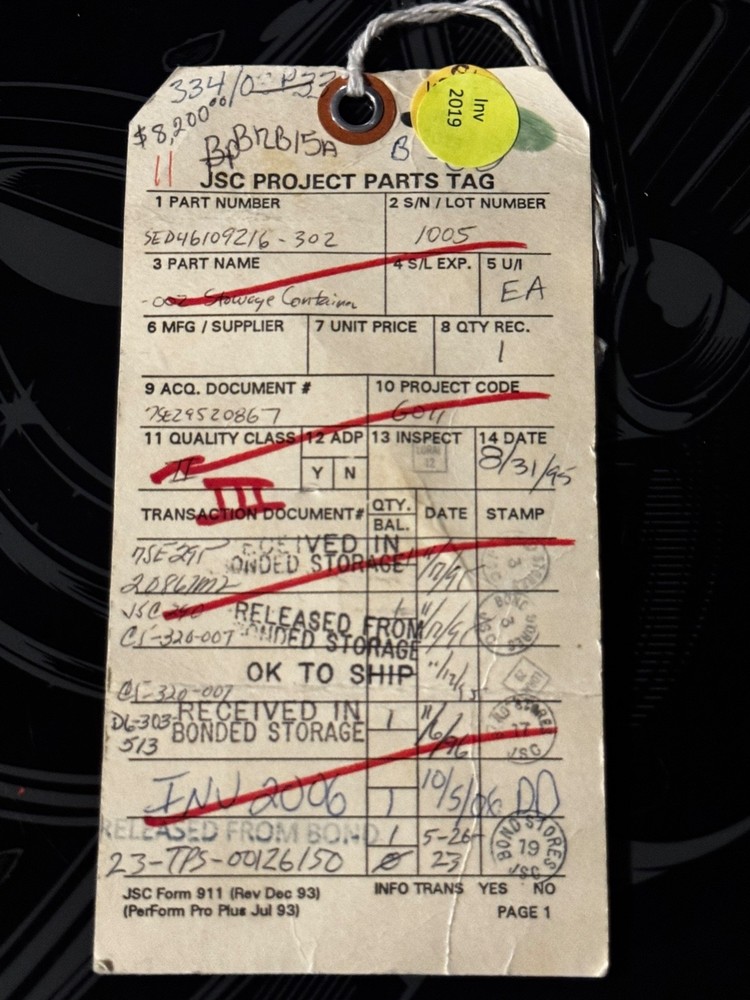 334/0
$8,200.00
Inv
2019
BRB15A
B
11
JSC PROJECT PARTS TAG
1 PART NUMBER 2 S/N / LOT NUMBER
SED46109216-302 1005
3 PART NAME 4 S/L EXP. 5 U/I
-002 Stowage Container EA
6 MFG / SUPPLIER 7 UNIT PRICE 8 QTY REC.
1
9 ACQ. DOCUMENT # 10 PROJECT CODE
7SE29520867
11 QUALITY CLASS 12 ADP 13 INSPECT 14 DATE
II Y N 8/31/95
III
TRANSACTION DOCUMENT# QTY. BAL. DATE STAMP
RECEIVED IN
7SE295 BONDED STORAGE
RELEASED FROM
BONDED STORAGE
C5-320-007
OK TO SHIP
C5-320-007
D6-303- RECEIVED IN 1 11/6/96 BOND STORES 17 JSC
513 BONDED STORAGE
INV 2006 1 10/5/06 DD
RELEASED FROM BOND 1 5-26- BOND STORES
23-TPS-00126150 0 23 19 JSC
JSC Form 911 (Rev Dec 93) INFO TRANS YES NO
(PerForm Pro Plus Jul 93) PAGE 1